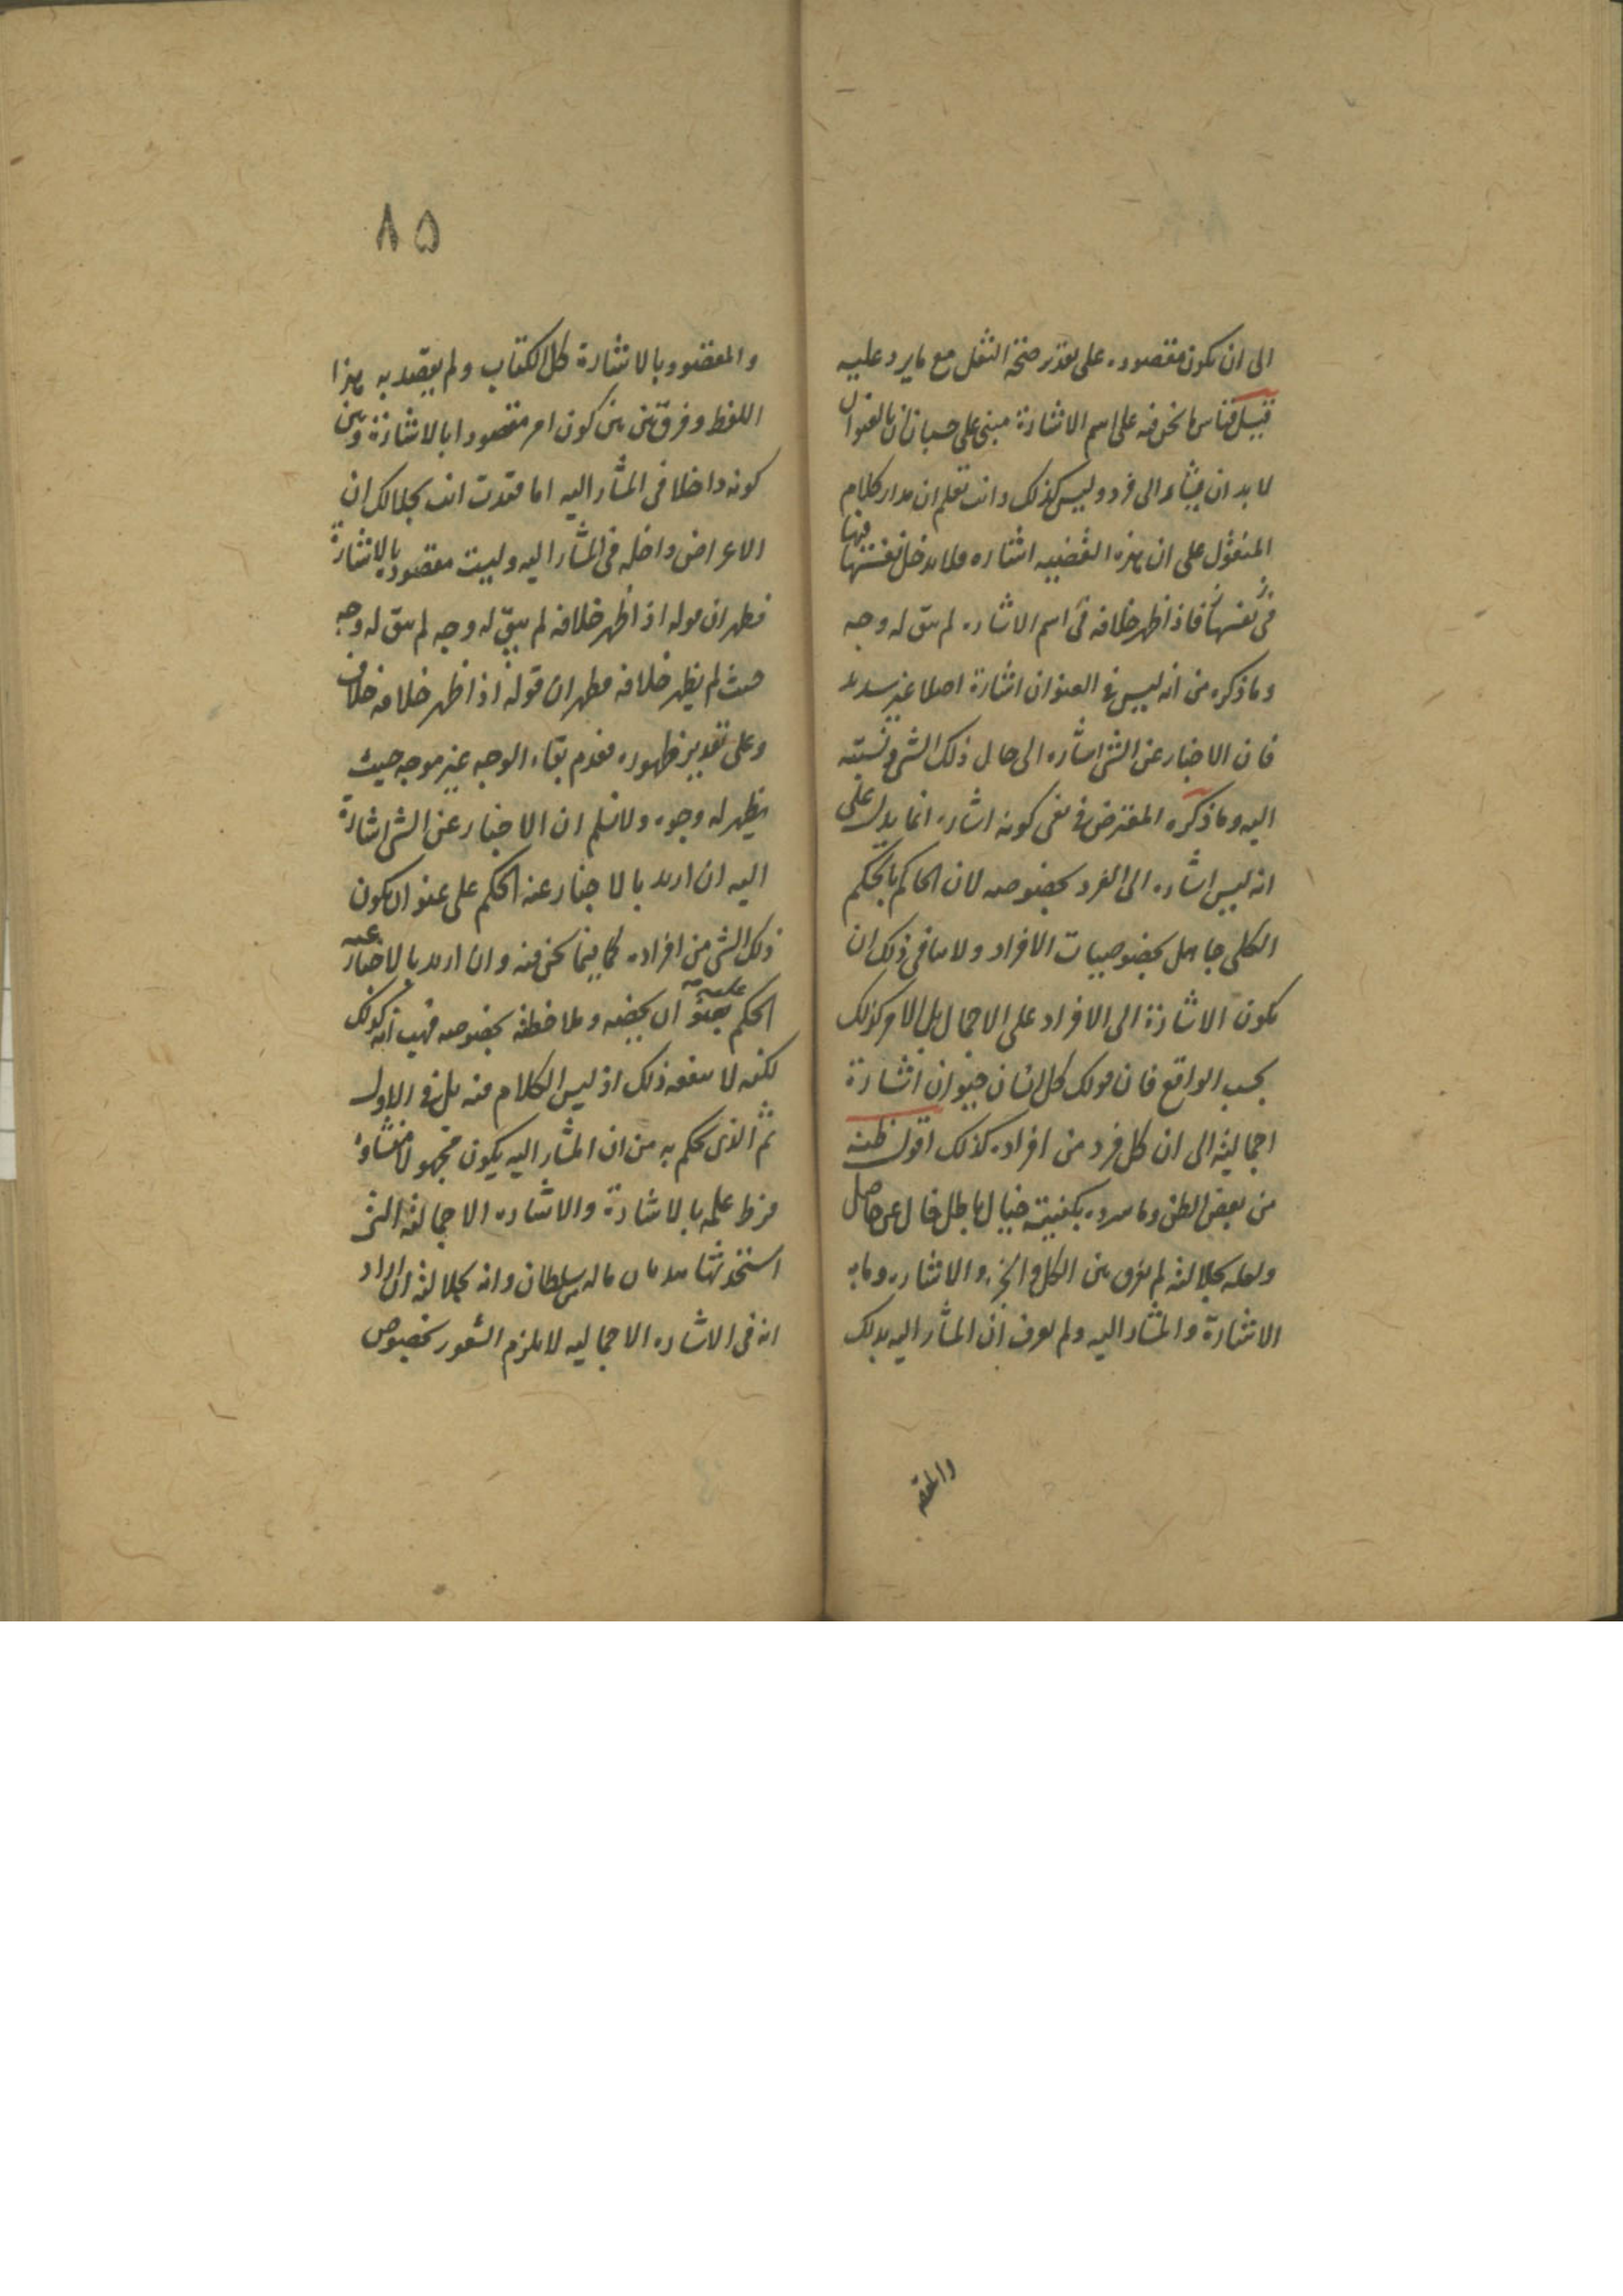 الى ان يكون مقصوده على تقدير صحة النقل مع ما يرد عليه
قيل قياس ما نحن فيه على اسم الاشارة مبنى على حسبان ان بالعنوان
لا بد ان يشار الى فرد وليس كذلك وانت تعلم ان مدار كلام
المنقول على ان هذه القضيه اشاره فلا يدخل نفسها فيها
فى نفسها فاذا ظهر خلافه فى اسم الاشاره لم يبق له وجه
وما ذكره من انه ليس فى العنوان اشارة اصلا غير سديد
فان الاخبار عن الشئ اشاره الى حال ذلك الشئ ونسبته
اليه وما ذكره المعترض فى نفى كونه اشاره انما يدل على
انه ليس اشاره الى الفرد بخصوصه لان الحاكم بالحكم
الكلى جاهل بخصوصيات الافراد ولا ينافى ذلك ان
يكون الاشارة الى الافراد على الاجمال بل الامر كذلك
بحسب الواقع فان قولك كل انسان حيوان اشارة
اجمالية الى ان كل فرد من افراده كذلك اقول ظنه
من بعض الظن وما سرده بكفيته خيال باطل خال عن حاصل
ولعله بجلالته لم يفرق بين الكل والجزء والاشاره وما به
الاشارة والمشار اليه ولم يعرف ان المشار اليه بذلك
والمقصـ
٨٥
والمقصود بالاشارة كل الكتاب ولم يقصد به هذا
اللفظ وفرق بين بين كون امر مقصودا بالاشارة وبين
كونه داخلا فى المشار اليه اما فقدت انت بجلالك ان
الاعراض داخله فى المشار اليه وليست مقصوده بالاشارة
فظهر ان قوله اذ اظهر خلافه لم يبق له وجه لم يبق له وجه
حيث لم يظهر خلافه فظهر ان قوله اذ اظهر خلافه خلاف
وعلى تقدير ظهوره فعدم بقاء الوجه غير موجه حيث
يظهر له وجوه ولا نسلم ان الاخبار عن الشئ اشارة
اليه ان اريد بالاخبار عنه الحكم على عنوان يكون
ذلك الشئ من افراده كما فيما نحن فيه وان اريد بالاخبار عنه
الحكم عليه بعنوان يخصه وملاحظة بخصوصه فهب انه كذلك
لكنه لا ينفعه ذلك اذ ليس الكلام فيه بل فى الاول
ثم الذى حكم به من ان المشار اليه يكون مجهولا منشاوه
فرط علمه بالاشارة والاشاره الاجمالية التى
استحدثها مما ماله سلطان وانه بجلالته ان اراد
انه فى الاشاره الاجماليه لا يلزم الشعور بخصوص